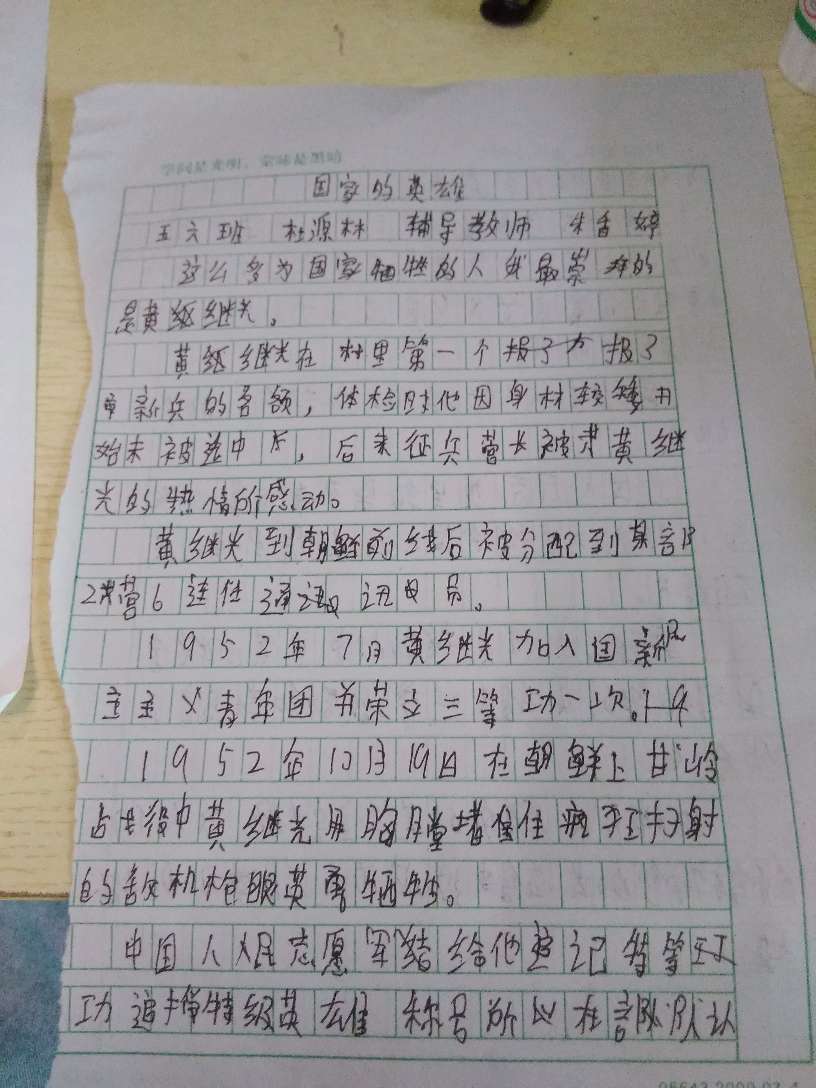 学问是光明，蒙昧是黑暗
国家的英雄
五六班 杜源林 辅导教师 朱香婷
这么多为国家牺牲的人我最崇拜的
是黄继继光。
黄继继光在村里第一个报了力报了
新兵的名额，体检时他因身材较矮开
始未被选中后，后来征兵营长被黄继
光的热情所感动。
黄继光到朝鲜前线后被分配到某部
2营6连任通讯员。
1952年7月黄继光加入国新民
主主义青年团并荣立三等功一次。19
1952年10月19日在朝鲜上甘岭
占役中黄继光用胸膛堵住疯狂扫射
的敌机枪眼英勇牺牲。
中国人民志愿军给他记特等功
功追授特级英雄称号所以在部队